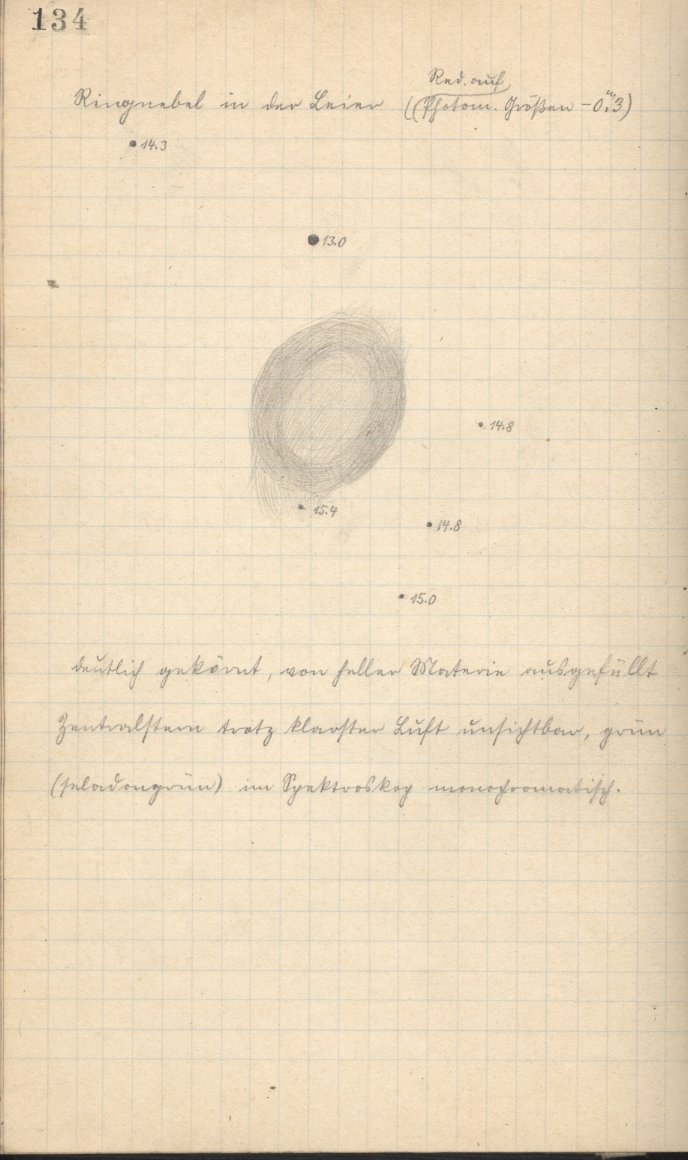 134
Red. auf
Ringnebel in der Leier (Photom. Größen -0.ᵐ3)
14.3
13.0
14.8
15.4
14.8
15.0
deutlich gekörnt, von heller Materie ausgefüllt
Zentralstern trotz klarster Luft unsichtbar, grün
(seladongrün) im Spektroskop monochromatisch.